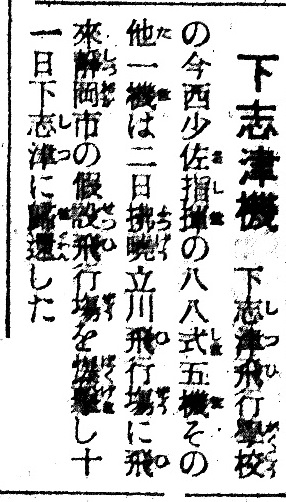 下志津機 下志津飛行學校
の今西少佐指揮の八八式五機その
他一機は二日拂曉立川飛行場に飛
來靜岡市の假設飛行場を爆擊し十
一日下志津に歸還した